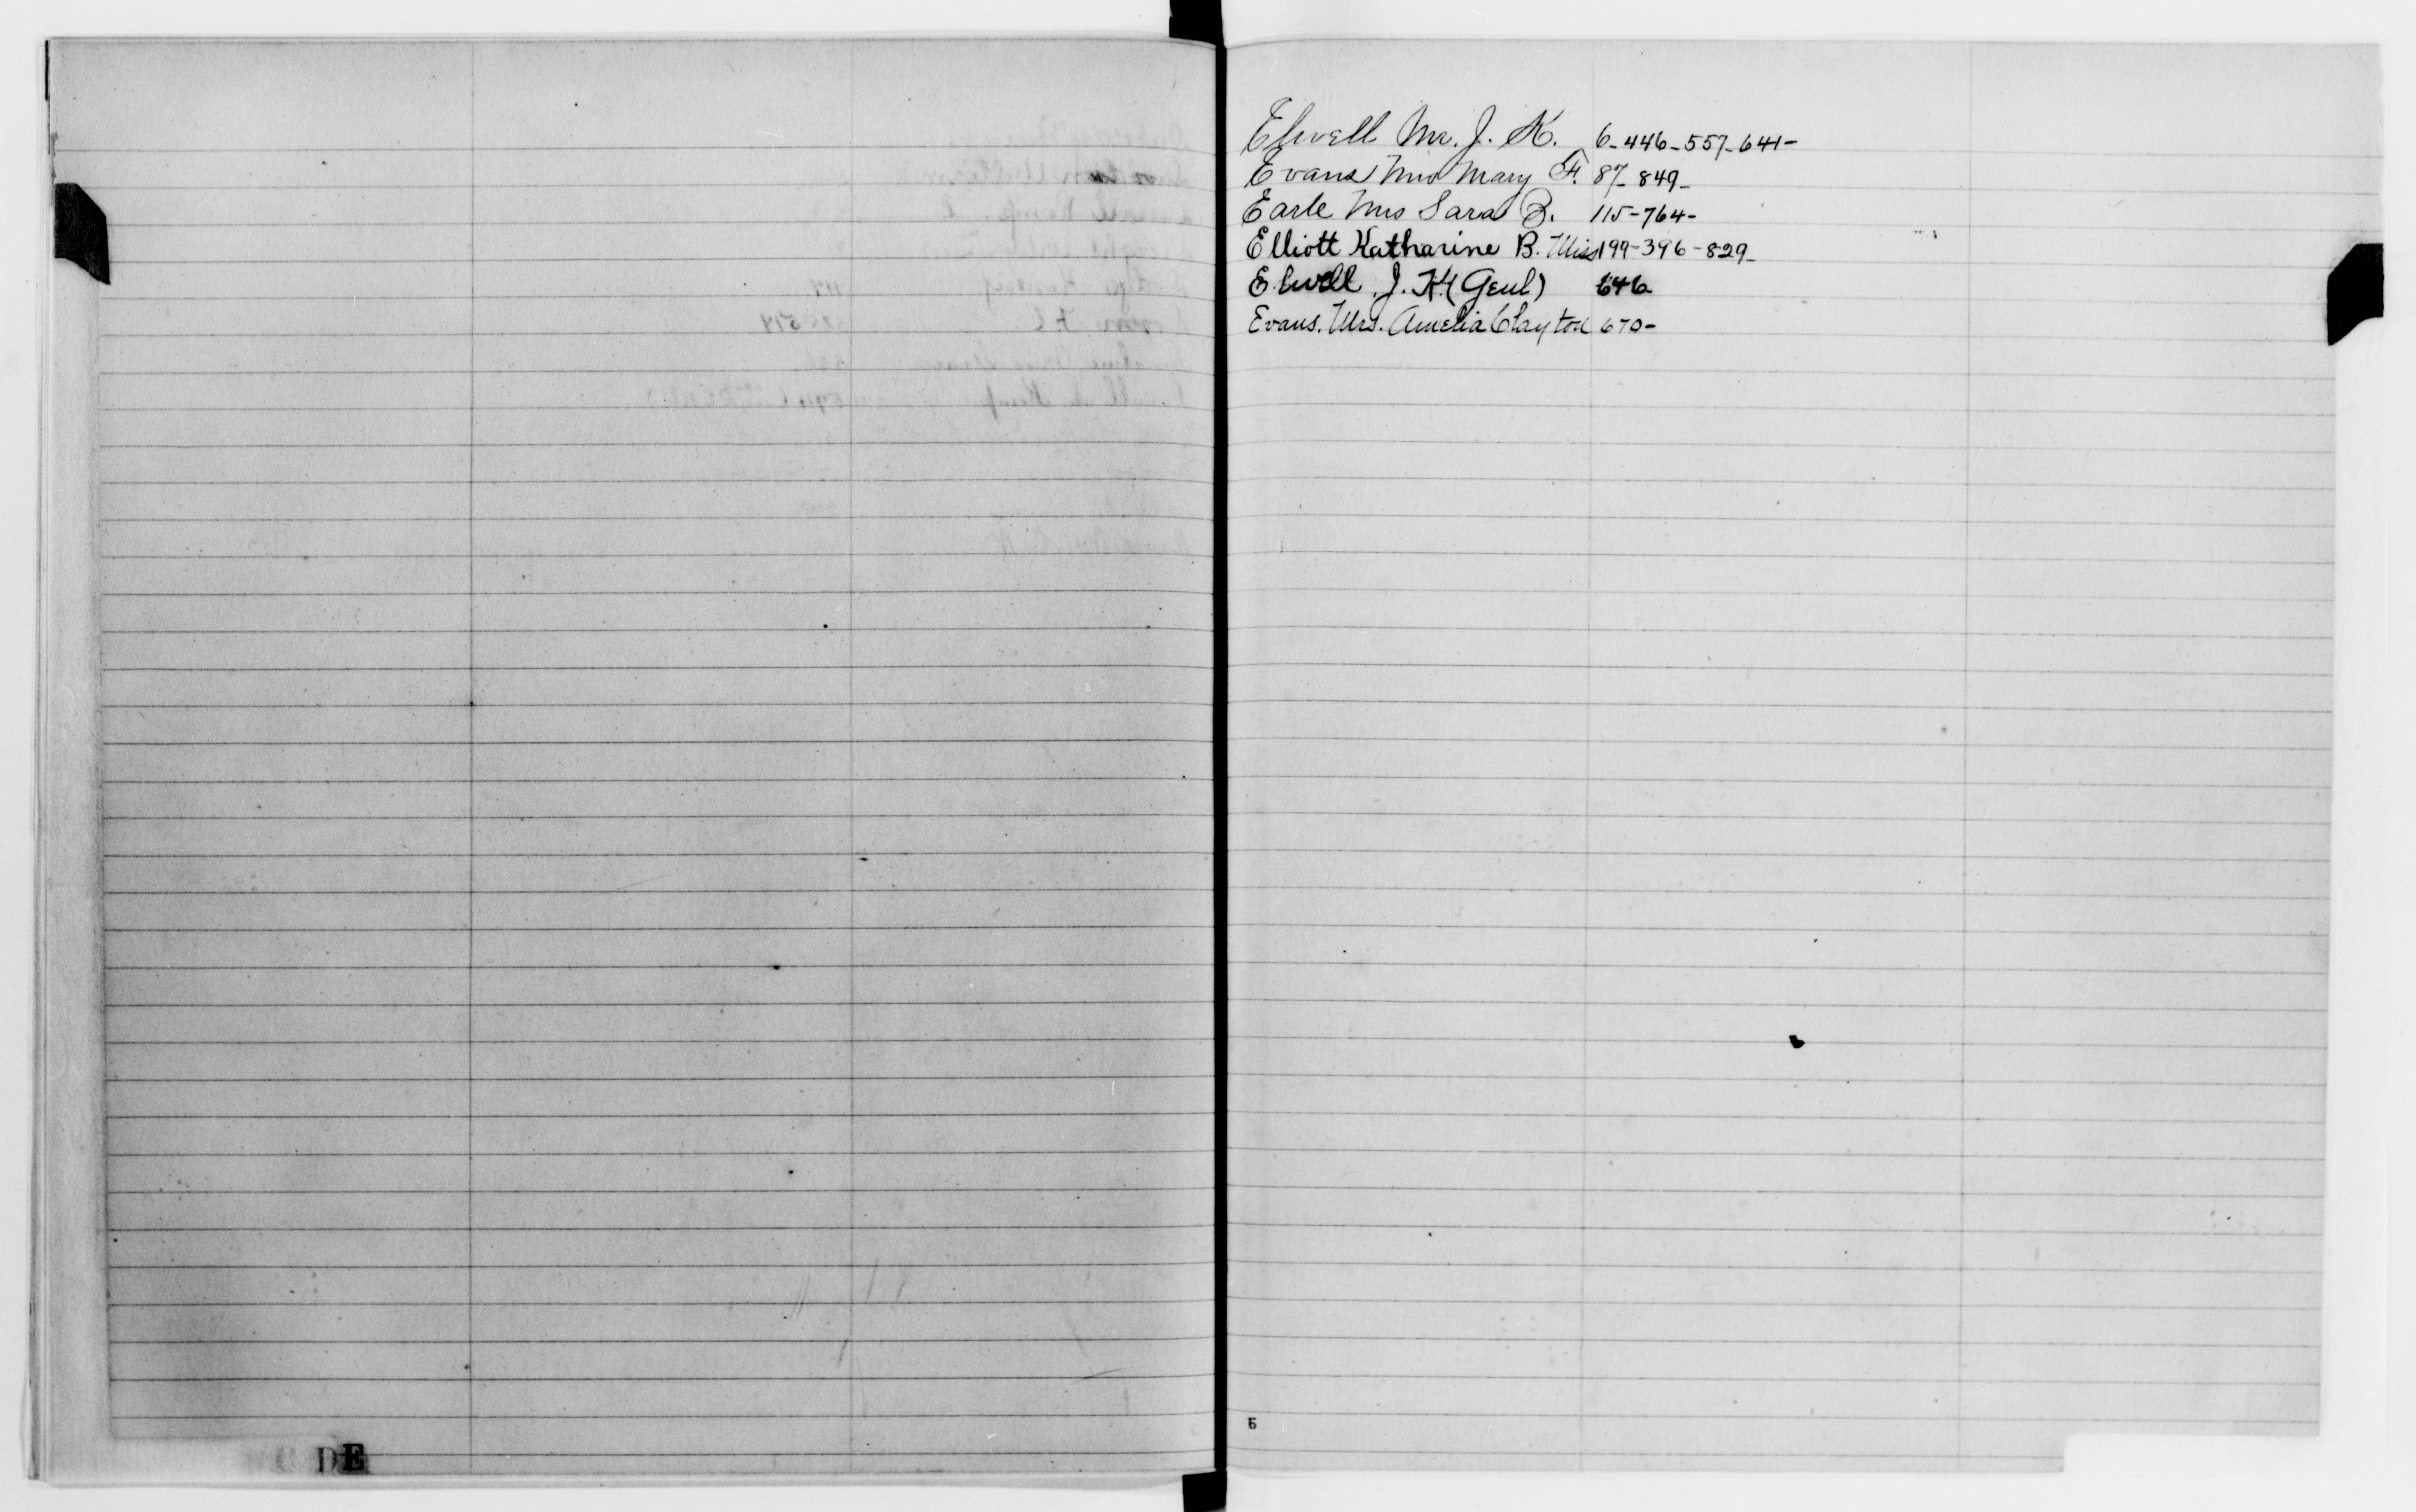 Elwell Mr. J. K. 6-446-557-641-
Evans Mrs Mary F. 87-849-
Earle Mrs Sara B. 115-764-
Elliott Katharine B. Miss 199-396-829-
Elwell, J. K. (Genl) 646
Evans. Mrs. Amelia Clayton 670-
DE